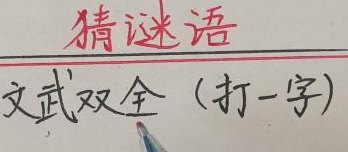 猜谜语
文武双全（打一字）